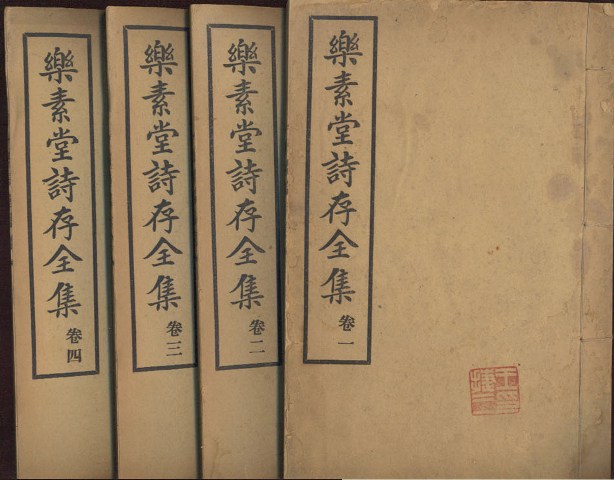 樂素堂詩存全集 卷一
樂素堂詩存全集 卷二
樂素堂詩存全集 卷三
樂素堂詩存全集 卷四